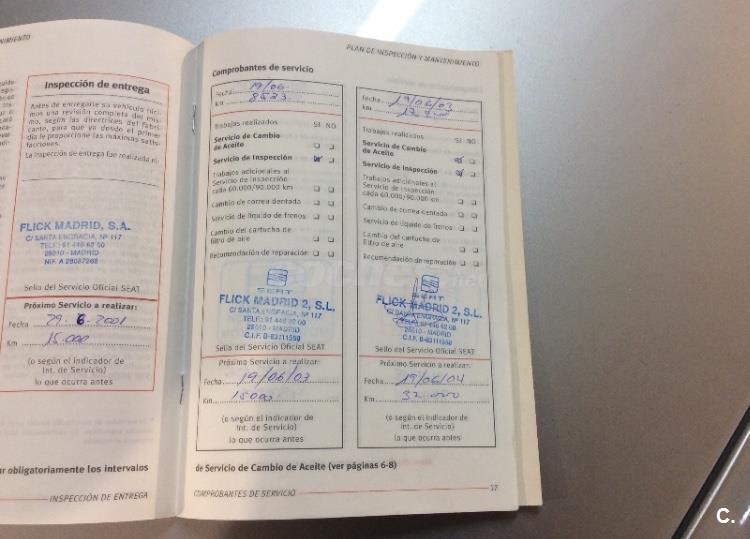 NIMIENTO
Inspección de entrega
Antes de entregarle su vehículo hici-
mos una revisión completa del mis-
mo, según las directrices del fabri-
cante, para que ya desde el primer
día le proporcione las máximas satis-
facciones.
La inspección de entrega fue realizada el:
FLICK MADRID, S.A.
C/ SANTA ENGRACIA, Nº 117
TELF.: 91 446 62 00
28010 - MADRID
NIF. A 28087268
Sello del Servicio Oficial SEAT
Próximo Servicio a realizar:
Fecha 29. 6-2001
Km 15.000
(o según el indicador de
Int. de Servicio)
lo que ocurra antes
ar obligatoriamente los intervalos
INSPECCIÓN DE ENTREGA
PLAN DE INSPECCIÓN Y MANTENIMIENTO
Comprobantes de servicio
Fecha 19/06
Km 8523
Trabajos realizados SI NO
Servicio de Cambio
de Aceite
Servicio de Inspección
Trabajos adicionales al
Servicio de Inspección
cada 60.000/90.000 km
Cambio de correa dentada
Servicio de líquido de frenos
Cambio del cartucho de
filtro de aire
Recomendación de reparación
SEAT
FLICK MADRID 2, S.L.
C/ SANTA ENGRACIA, Nº 117
TELF.: 91 446 62 00
28010 - MADRID
C.I.F. B-83111550
Sello del Servicio Oficial SEAT
Próximo Servicio a realizar:
Fecha 19/06/03
Km 15000
(o según el indicador de
Int. de Servicio)
lo que ocurra antes
Fecha 19/06/03
Km
Trabajos realizados SI NO
Servicio de Cambio
de Aceite
Servicio de Inspección
Trabajos adicionales al
Servicio de Inspección
cada 60.000/90.000 km
Cambio de correa dentada
Servicio de líquido de frenos
Cambio del cartucho de
filtro de aire
Recomendación de reparación
SEAT
FLICK MADRID 2, S.L.
C/ SANTA ENGRACIA, Nº 117
TELF.: 91 446 62 00
28010 - MADRID
C.I.F. B-83111550
Sello del Servicio Oficial SEAT
Próximo Servicio a realizar:
Fecha 19/06/04
Km 32000
(o según el indicador de
Int. de Servicio)
lo que ocurra antes
de Servicio de Cambio de Aceite (ver páginas 6-8)
COMPROBANTES DE SERVICIO 27
C.